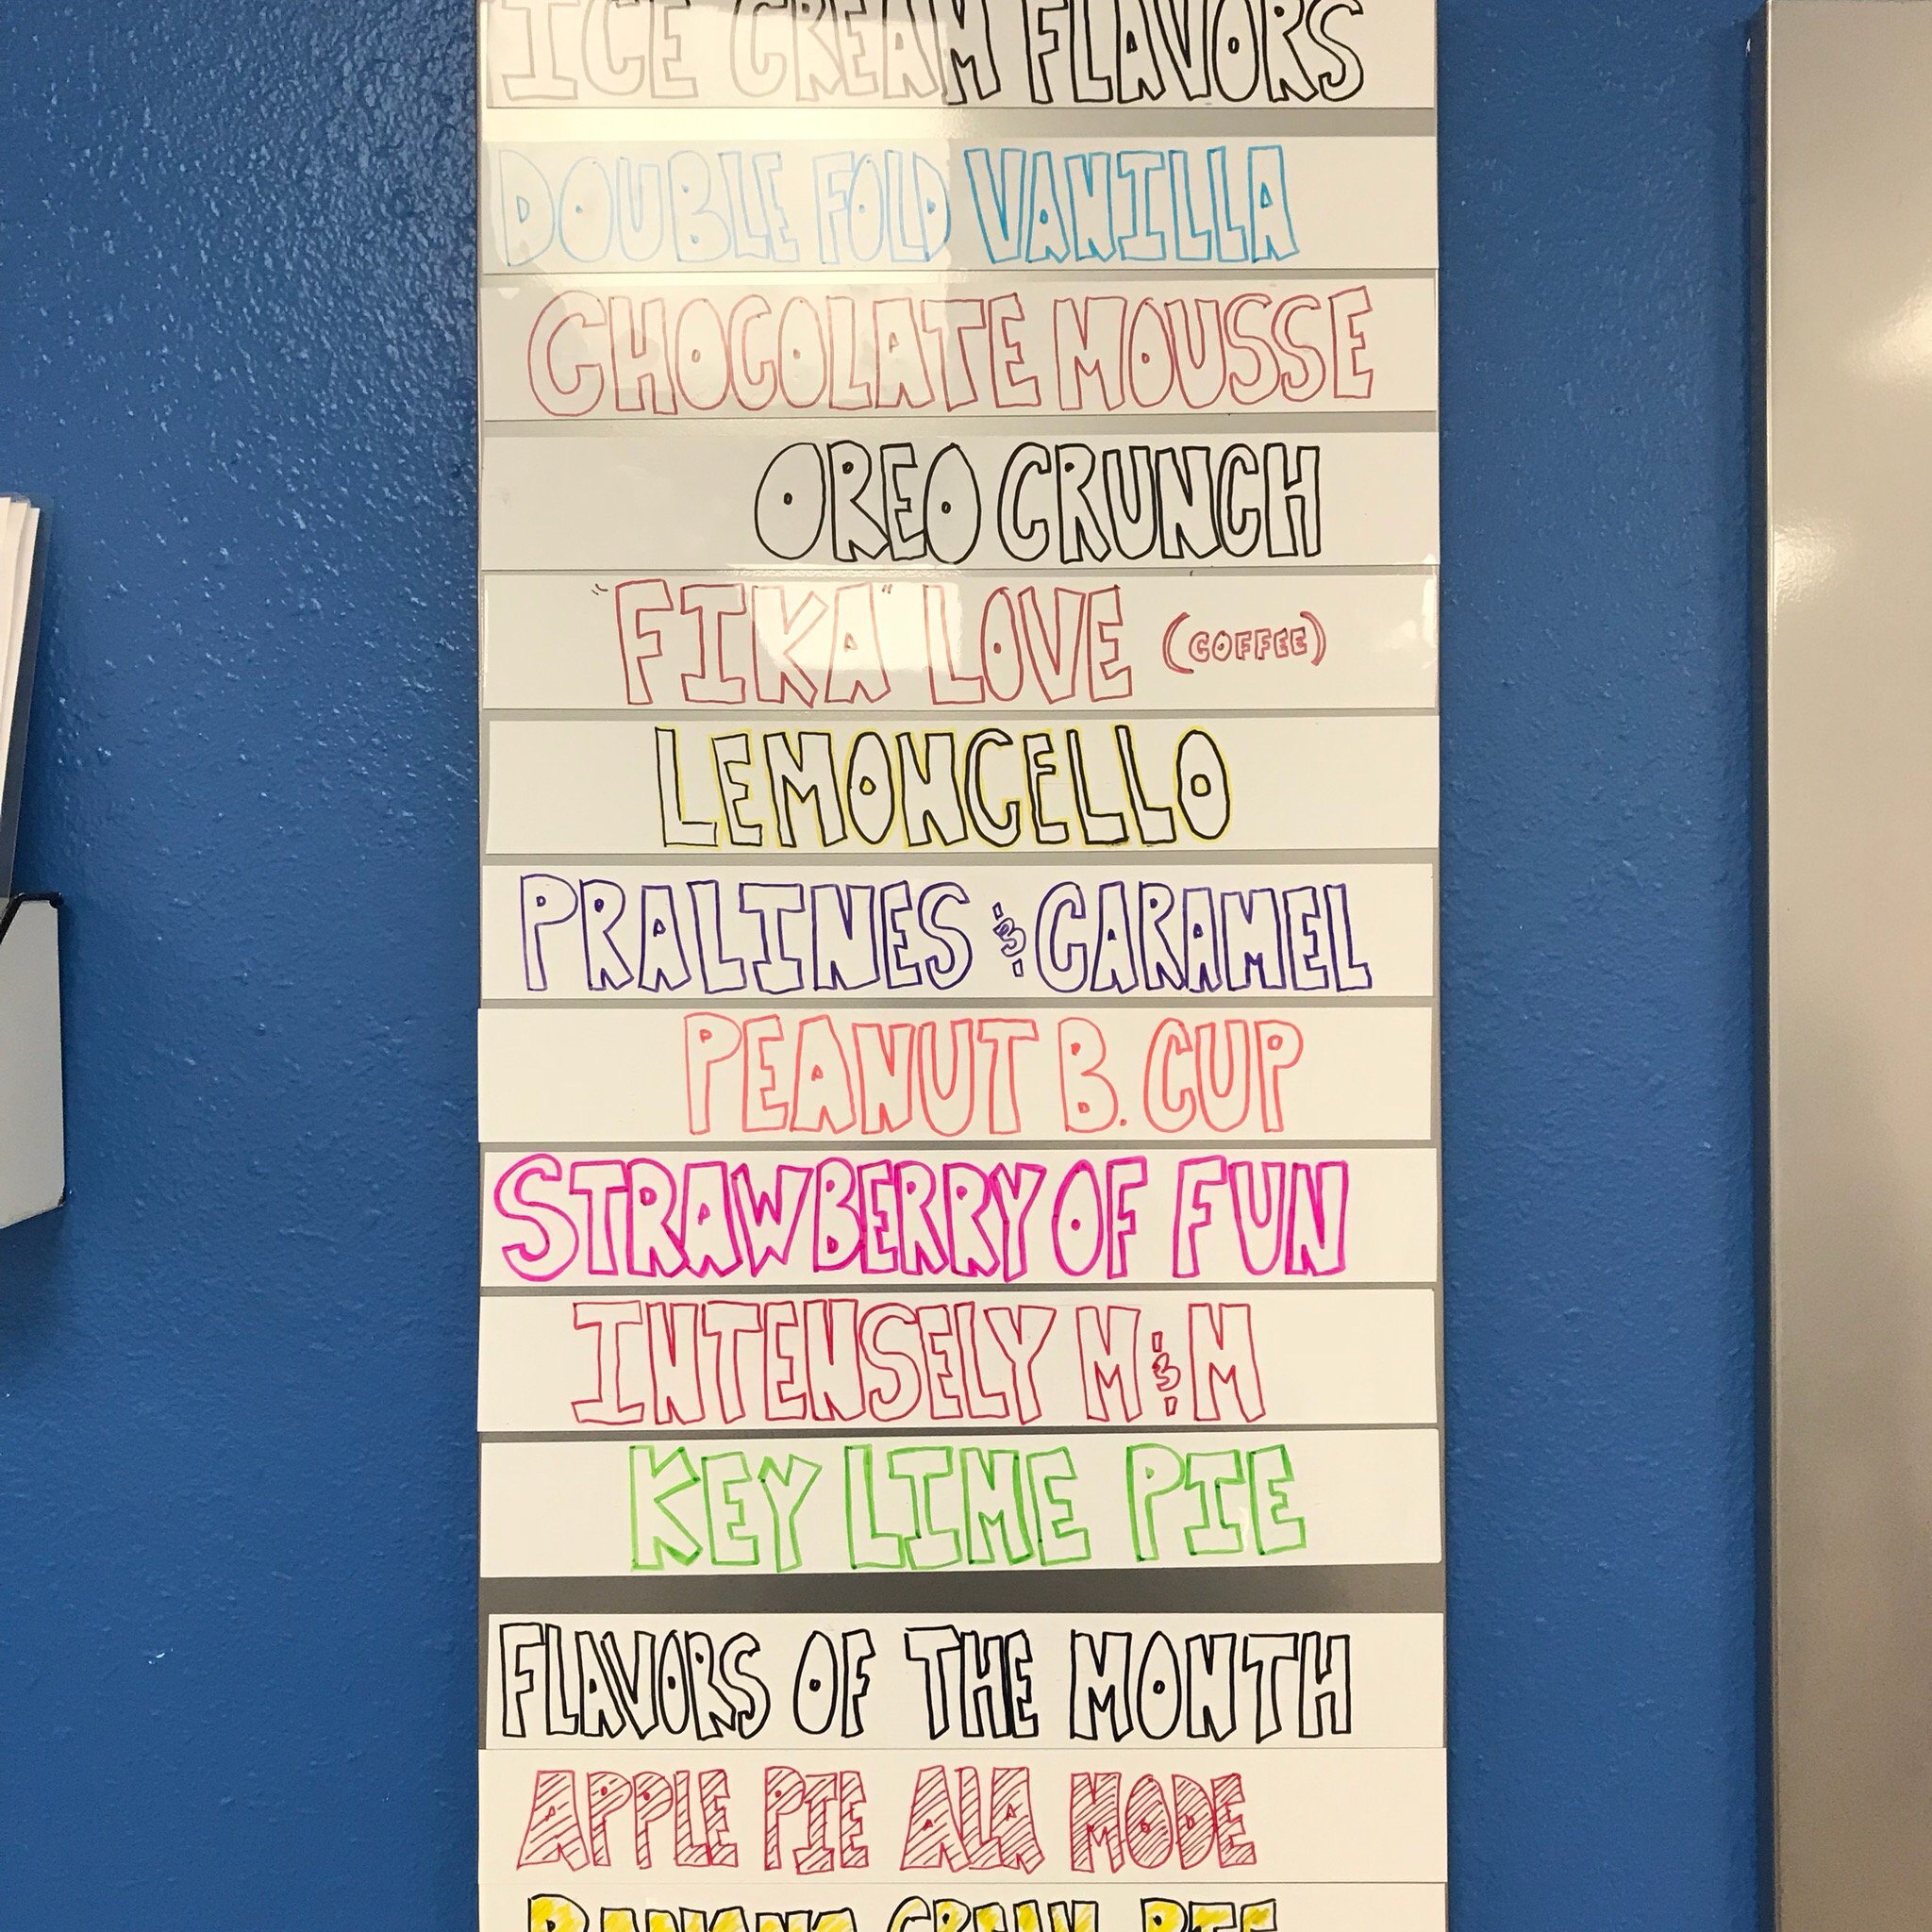 ICE CREAM FLAVORS
DOUBLE FOLD VANILLA
CHOCOLATE MOUSSE
OREO CRUNCH
"FIKA" LOVE (COFFEE)
LEMONCELLO
PRALINES & CARAMEL
PEANUT B. CUP
STRAWBERRY OF FUN
INTENSELY M&M
KEY LIME PIE
FLAVORS OF THE MONTH
APPLE PIE ALA MODE
BANANA CREAM PIE